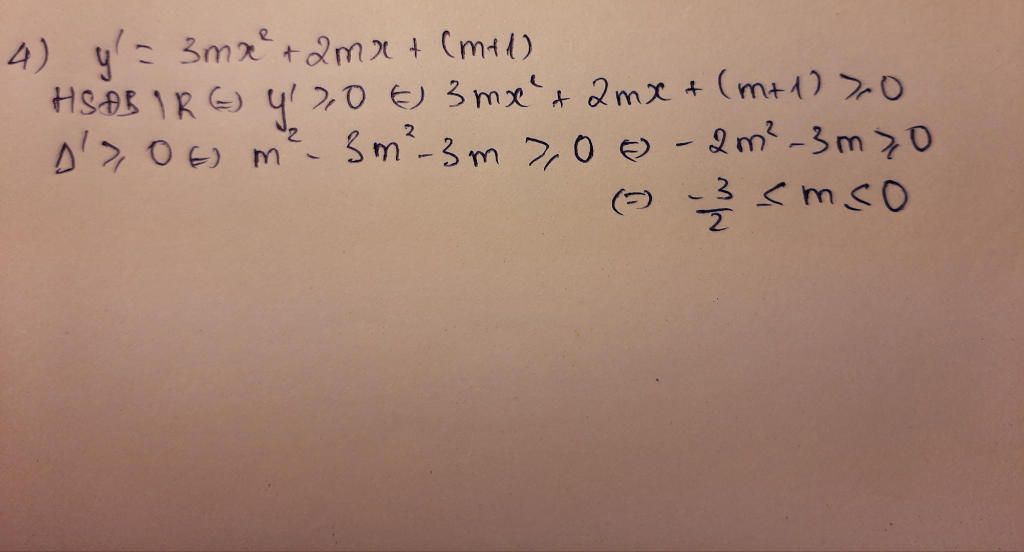 4) y' = 3mx² + 2mx + (m+1)
HSĐB \ R ⇔ y' ⩾ 0 ⇔ 3mx² + 2mx + (m+1) ⩾ 0
Δ' ⩾ 0 ⇔ m² - 3m² - 3m ⩾ 0 ⇔ - 2m² - 3m ⩾ 0
⇔ -3/2 ≤ m ≤ 0